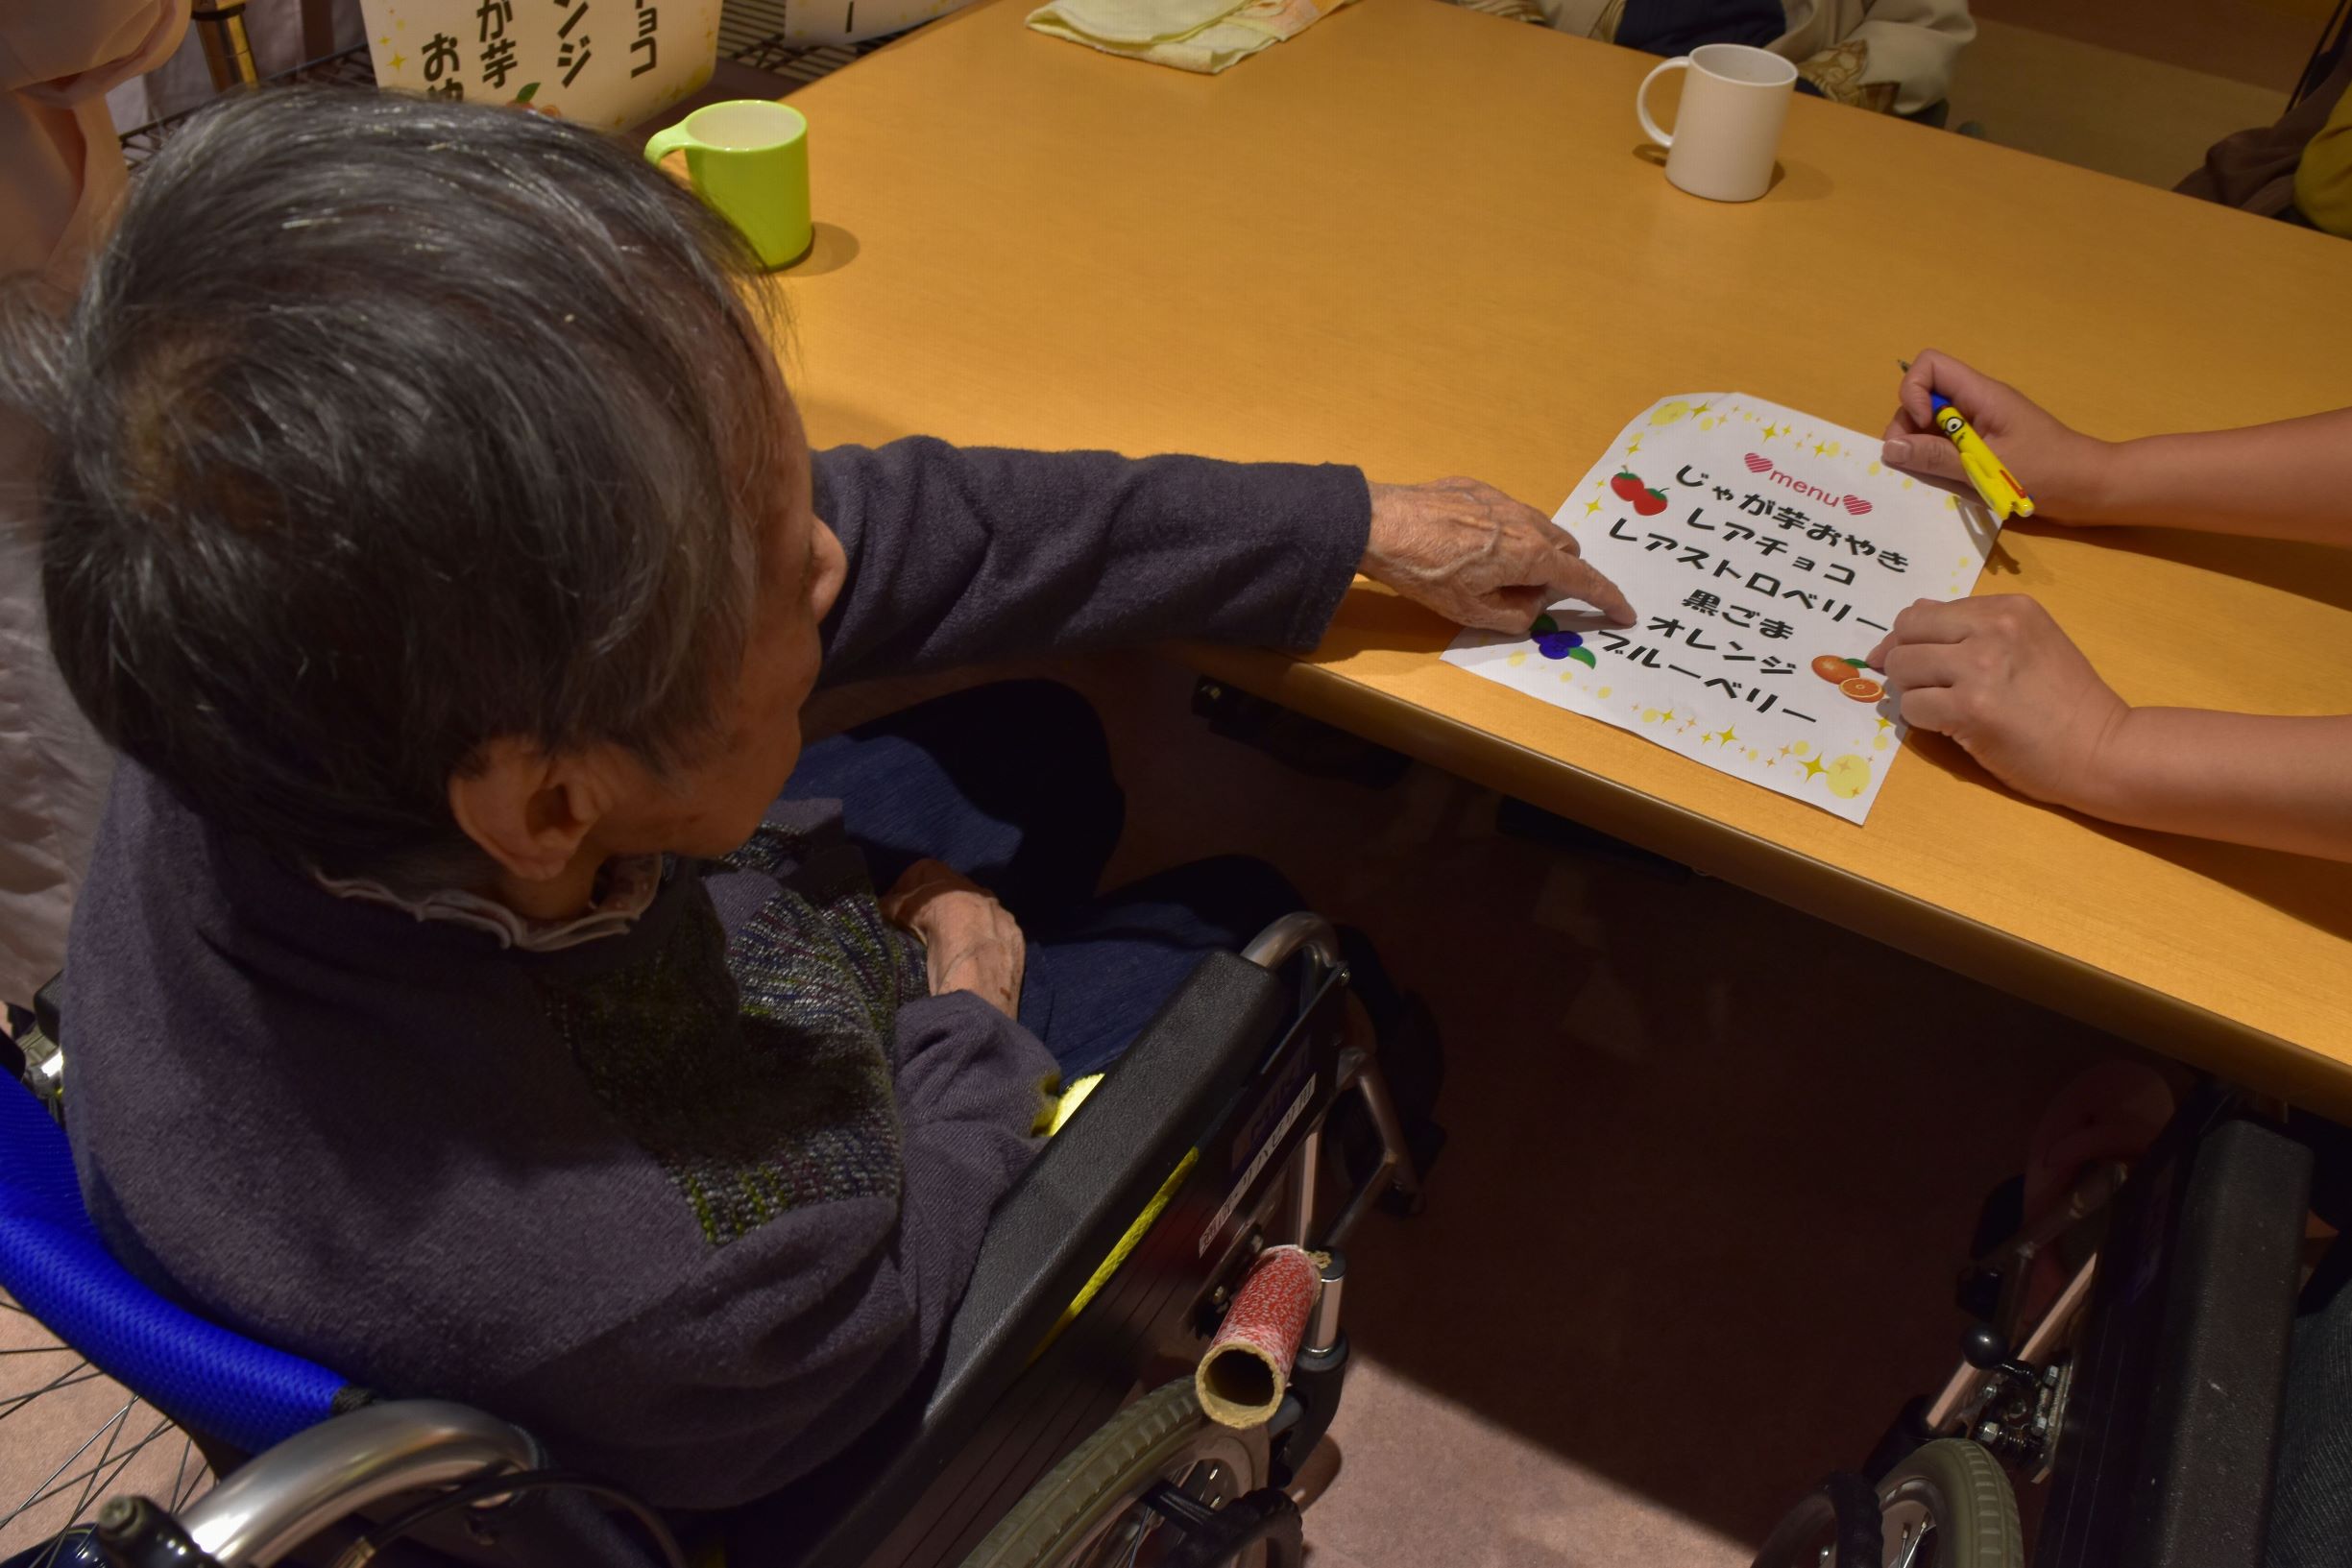 menu
じゃが芋おやき
レアチョコ
レアストロベリー
黒ごま
オレンジ
ブルーベリー
ョコ
ンジ
が芋
おや